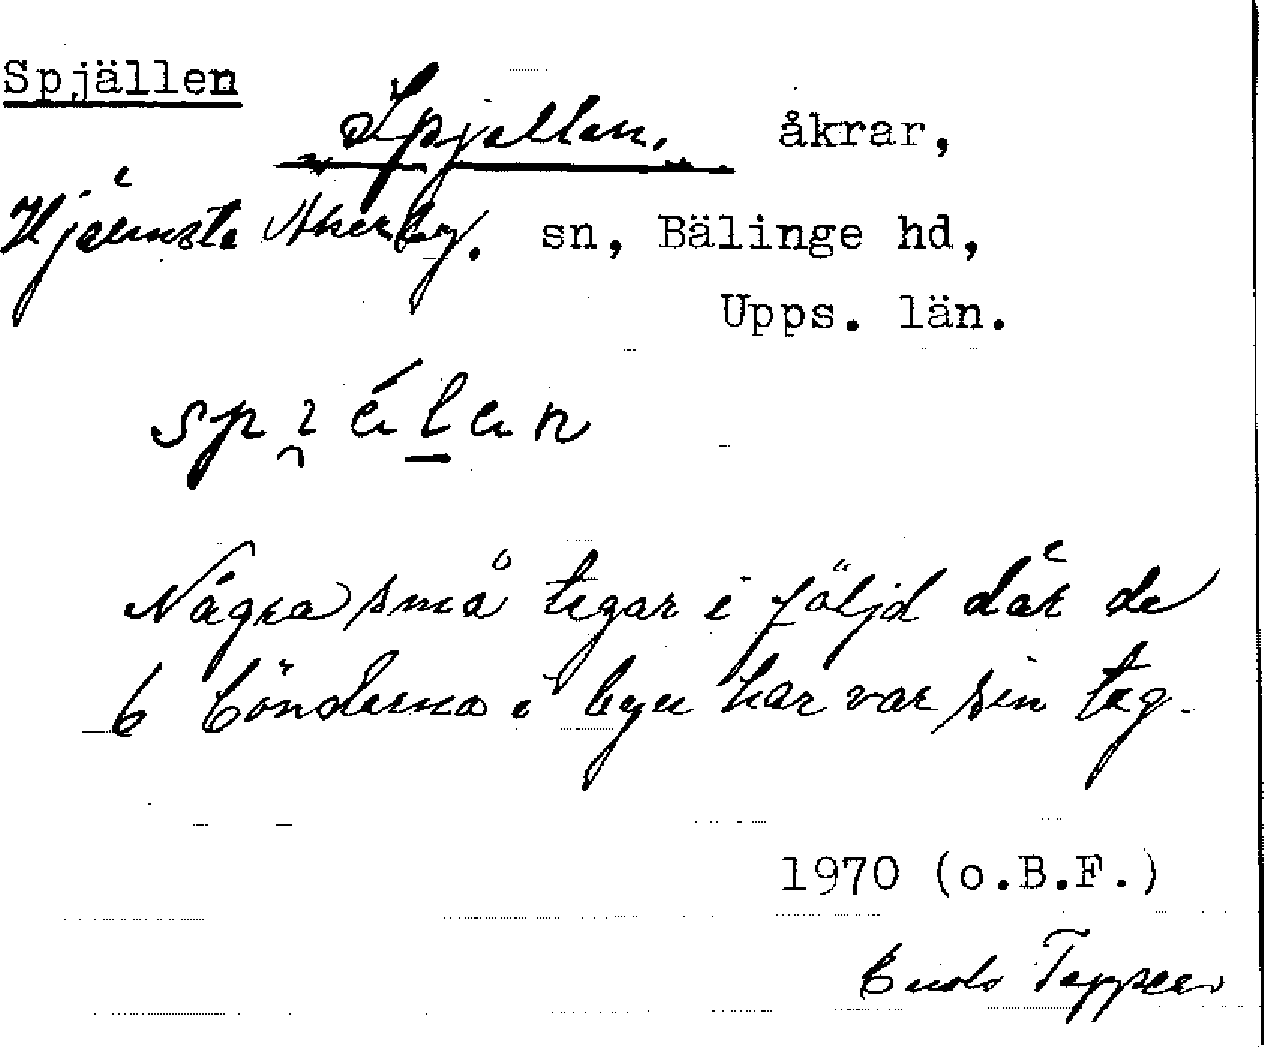 Spjällen
Spjällen, åkrar,
Hjälmsta Åkerby. sn, Bälinge hd,
Upps. län.
Några små tegar i följd där de
6 bönderna i byn har var sin teg.
1970 (o.B.F.)